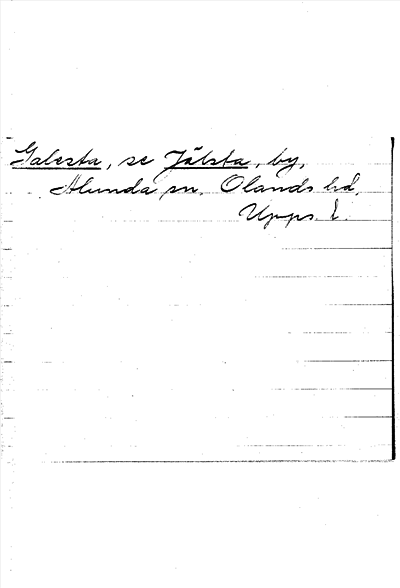 Galesta, se Jälsta, by,
Alunda sn. Olands hd.
Upps. l.